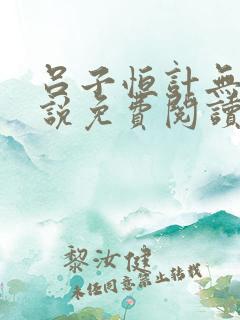 呂子恒計無
說免費閱讀
黎汝健
未经同意禁止转载